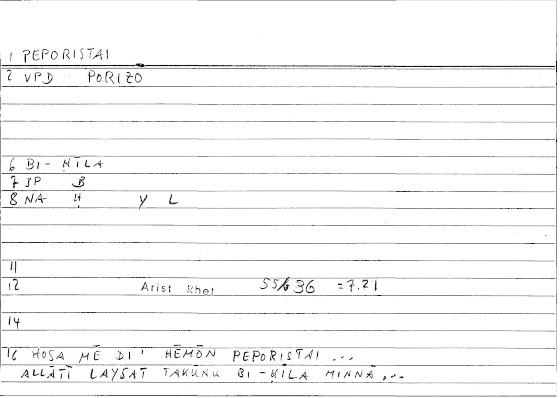 1 PEPORISTAI
2 VPD PORIZO
6 BI-ḤĪLA
7 JP B
8 NA Ḥ Y L
11
12 Arist Rhet 55b36 =7.21
14
16 HOSA MĒ DI' HĒMŌN PEPORISTAI ...
ALLĀTĪ LAYSAT TAKŪNU BI-ḤĪLA MINNĀ ...